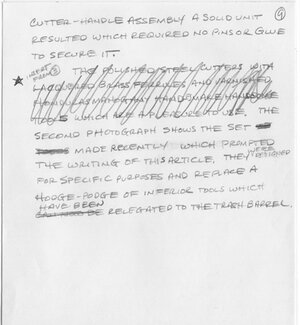 CUTTER-HANDLE ASSEMBLY A SOLID UNIT ⑨
RESULTED WHICH REQUIRED NO PINS OR GLUE
TO SECURE IT.
INSERT FROM ③
THE POLISHED STEEL CUTTERS WITH
LACQUERED BRASS FERRULES AND VARNISHED
HONDURAS MAHOGANY HANDLES MAKE HANDSOME
TOOLS WHICH ARE A PLEASURE TO USE, THE
SECOND PHOTOGRAPH SHOWS THE SET
MADE RECENTLY WHICH PROMPTED
THE WRITING OF THIS ARTICLE, THEY WERE DESIGNED
FOR SPECIFIC PURPOSES AND REPLACE A
HODGE-PODGE OF INFERIOR TOOLS WHICH
HAVE BEEN
RELEGATED TO THE TRASH BARREL.